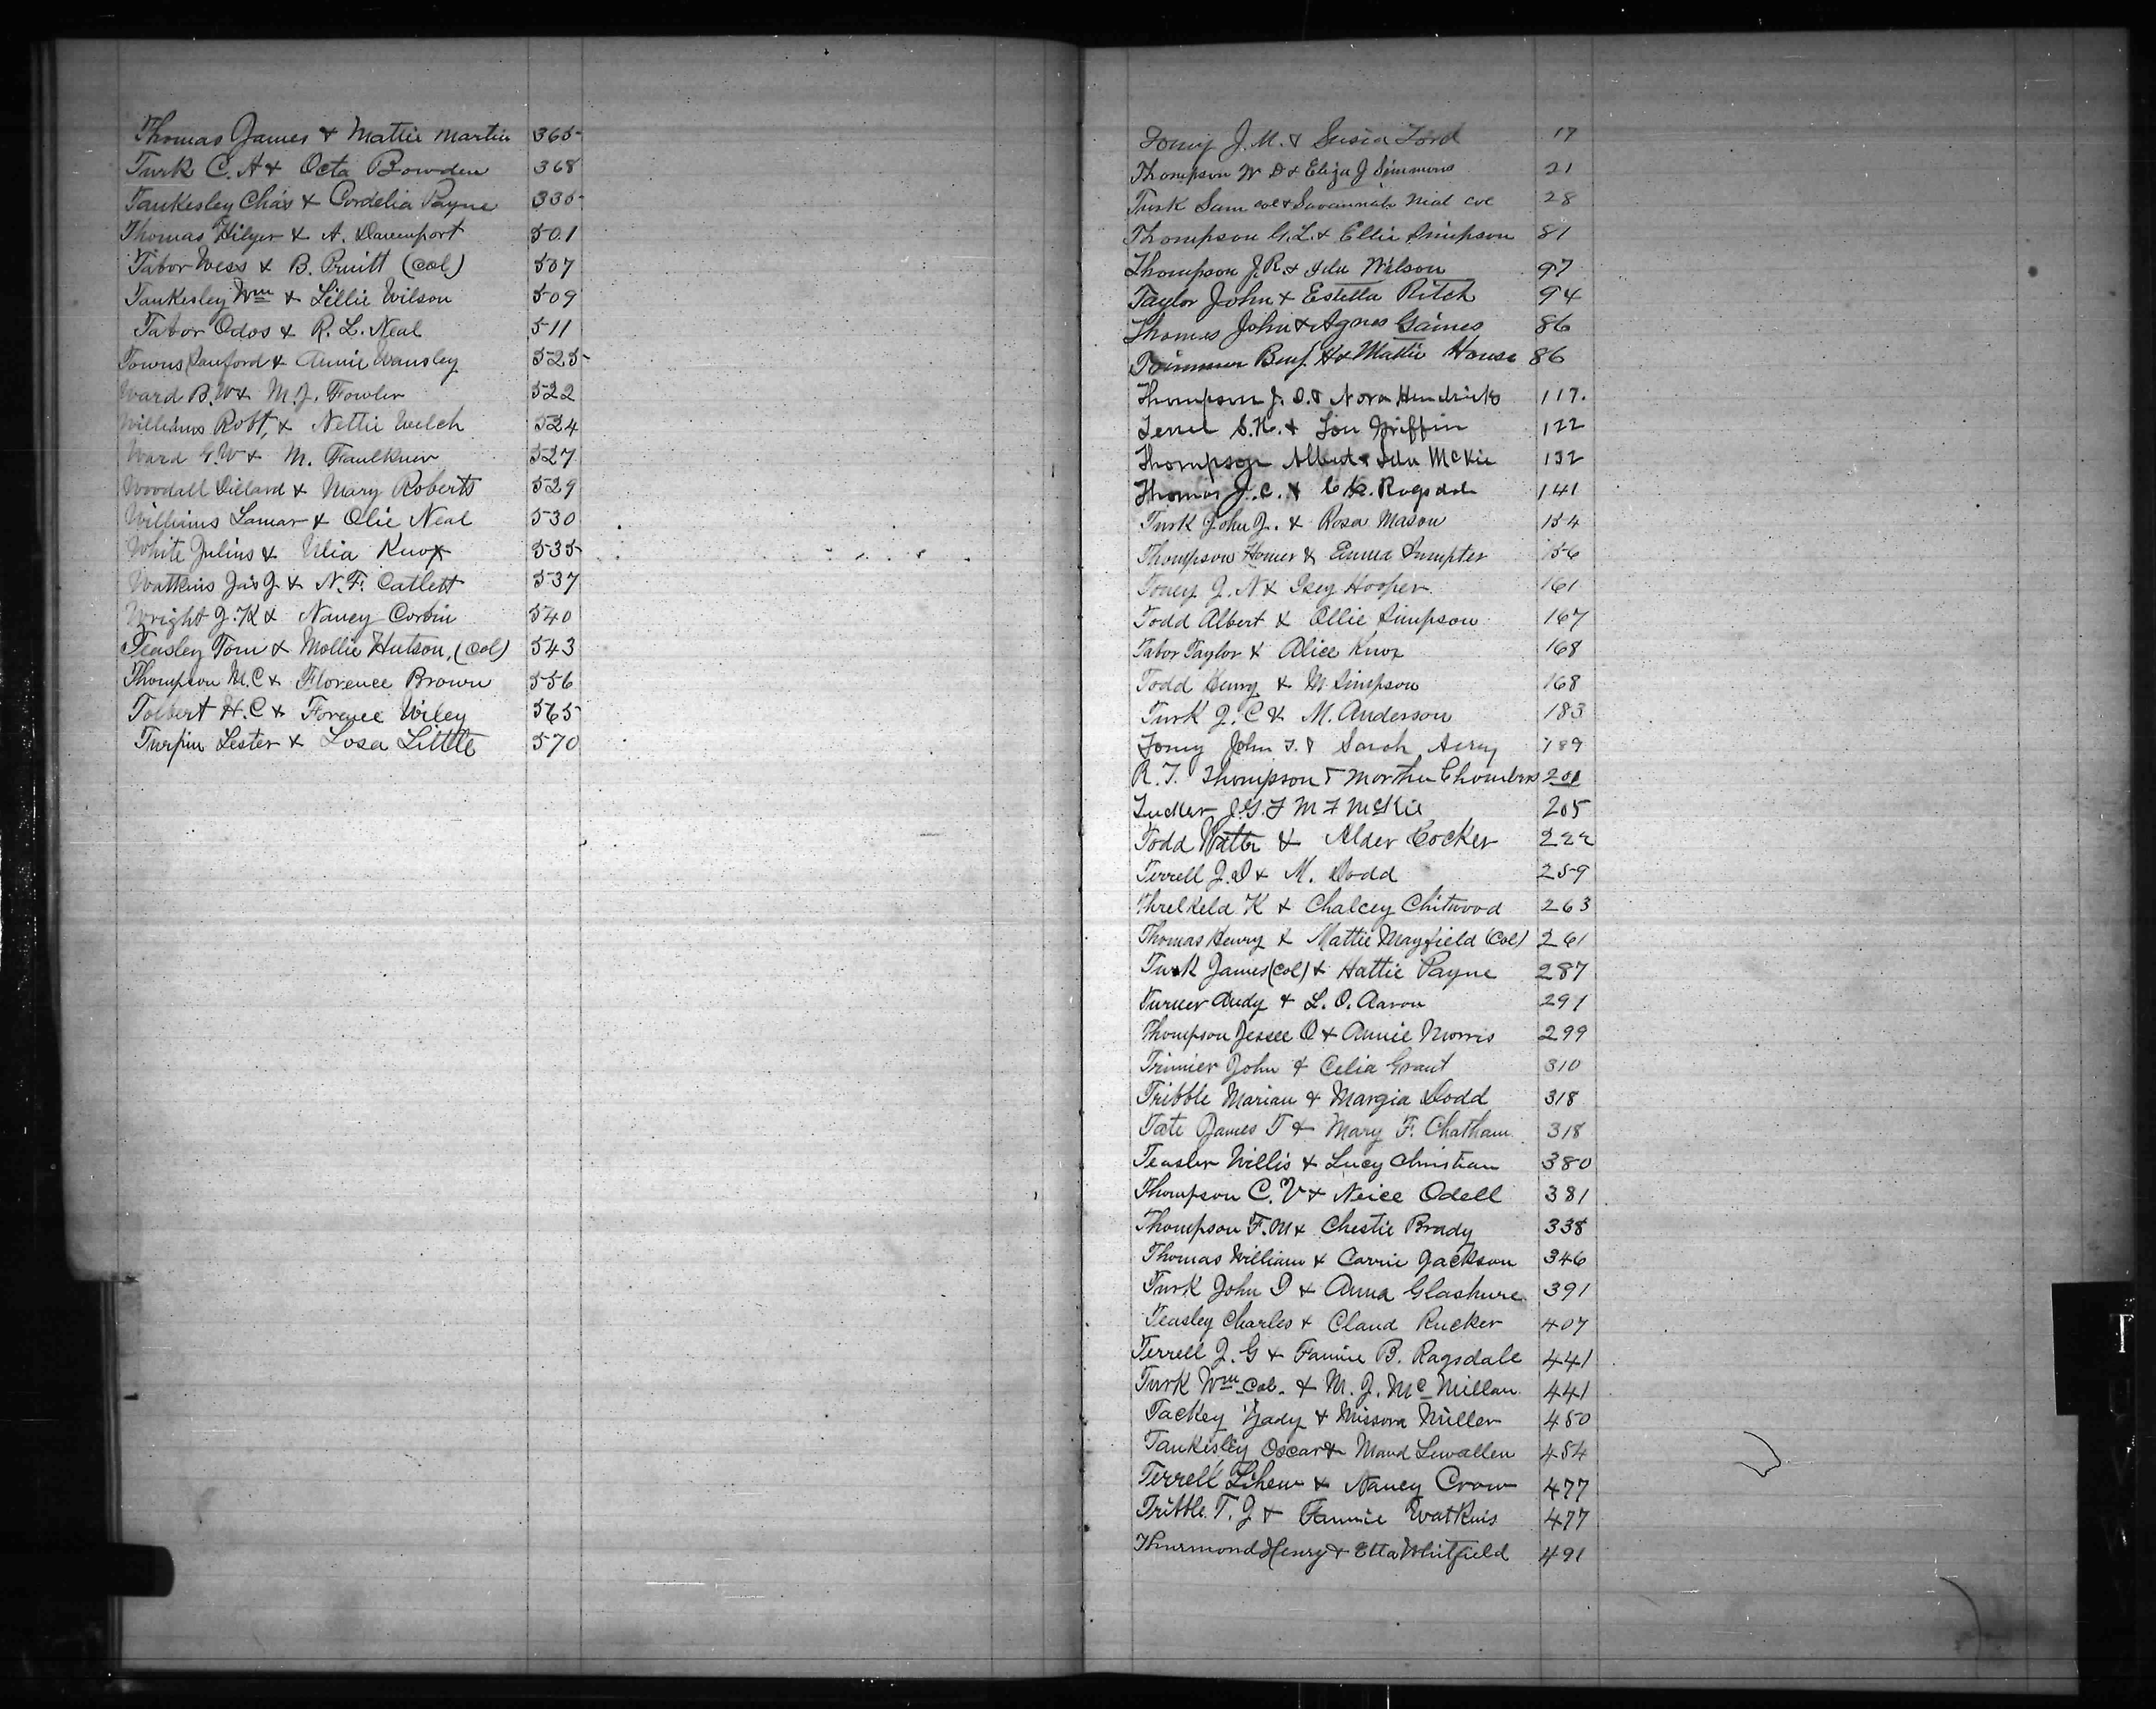 Thomas James & Mattie Martin 365
Turk C. A & Octa Bowden 368
Tankesley Chas & Cordelia Payne 335
Thomas Hilyer & A. Davenport 501
Tabor Wess & B. Pruitt (Col) 507
Tankesley Wm & Lillie Wilson 509
Tabor Odos & R. L. Neal 511
Towns Sanford & Annie Wansley 525
Ward B. W & M. J. Fowler 522
Williams Robt, & Nettie Welch 524
Ward G. W & M. Faulkner 527
Woodall Dillard & Mary Roberts 529
Williams Lamar & Olie Neal 530
White Julius & Ulia Knox 535
Watkins Jas J. & N. F. Catlett 537
Wright J. K & Nancy Corbin 540
Teasley Tom & Mollie Hutson, (Col) 543
Thompson M. C & Florence Brown 556
Tolbert H. C & Forence Wiley 565
Turpin Lester & Losa Little 570
Toney J. M. & Susia Ford 17
Thompson W D & Eliza J Simmons 21
Turk Sam col & Savannah Neal col 28
Thompson G. L. & Ellie Simpson 81
Thompson J. R. & Ida Wilson 97
Taylor John & Estella Ritch 94
Thomas John & Agnes Gaines 86
Benj. H & Mattie House 86
Thompson J. D. & Nora Hendricks 117.
S. H. & Lou Griffin 122
Thompson Albert & Ida McKie 132
Thomas J. C. & Ragsdale 141
Turk John J. & Rosa Mason 154
Thompson Homer & Emma Sumpter 156
Toney J. N & Hooper 161
Todd Albert & Ollie Simpson 167
Tabor Taylor & Alice Knox 168
Todd Henry & M. Simpson 168
Turk J. C & M. Anderson 183
Toney John T. & Sarah Avery 189
R. T. Thompson & Martha Chambers 201
Tucker J. G. & M F McKie 205
Todd Walter & Alder Cocker 222
Terrell J. D & M. Dodd 259
Threlkeld K & Chalcey Chitwood 263
Thomas Henry & Mattie Mayfield (Col) 261
Turk James (Col) & Hattie Payne 287
Turner Andy & L. O. Aaron 291
Thompson Jessee O & Annie Morris 299
Trimier John & Celia Grant 310
Tribble Marian & Margia Dodd 318
Tate James T & Mary F. Chatham 318
Teasler Willis & Lucy Christian 380
Thompson C. V & Neice Odell 381
Thompson F. M & Chestie Brady 338
Thomas William & Carrie Jackson 346
Turk John D & Anna Glashure 391
Teasley Charles & Claud Rucker 407
Terrell J. G & Fannie B. Ragsdale 441
Turk Wm Col. & M. J. McMillan 441
Tackey Gady & Missora Miller 450
Tankisley Oscar & Maud Lewallen 454
Terrell Lihew & Nancy Crow 477
Tribble. T. J & Fannie Watkins 477
Thurmond Henry & Etta Whitfield 491